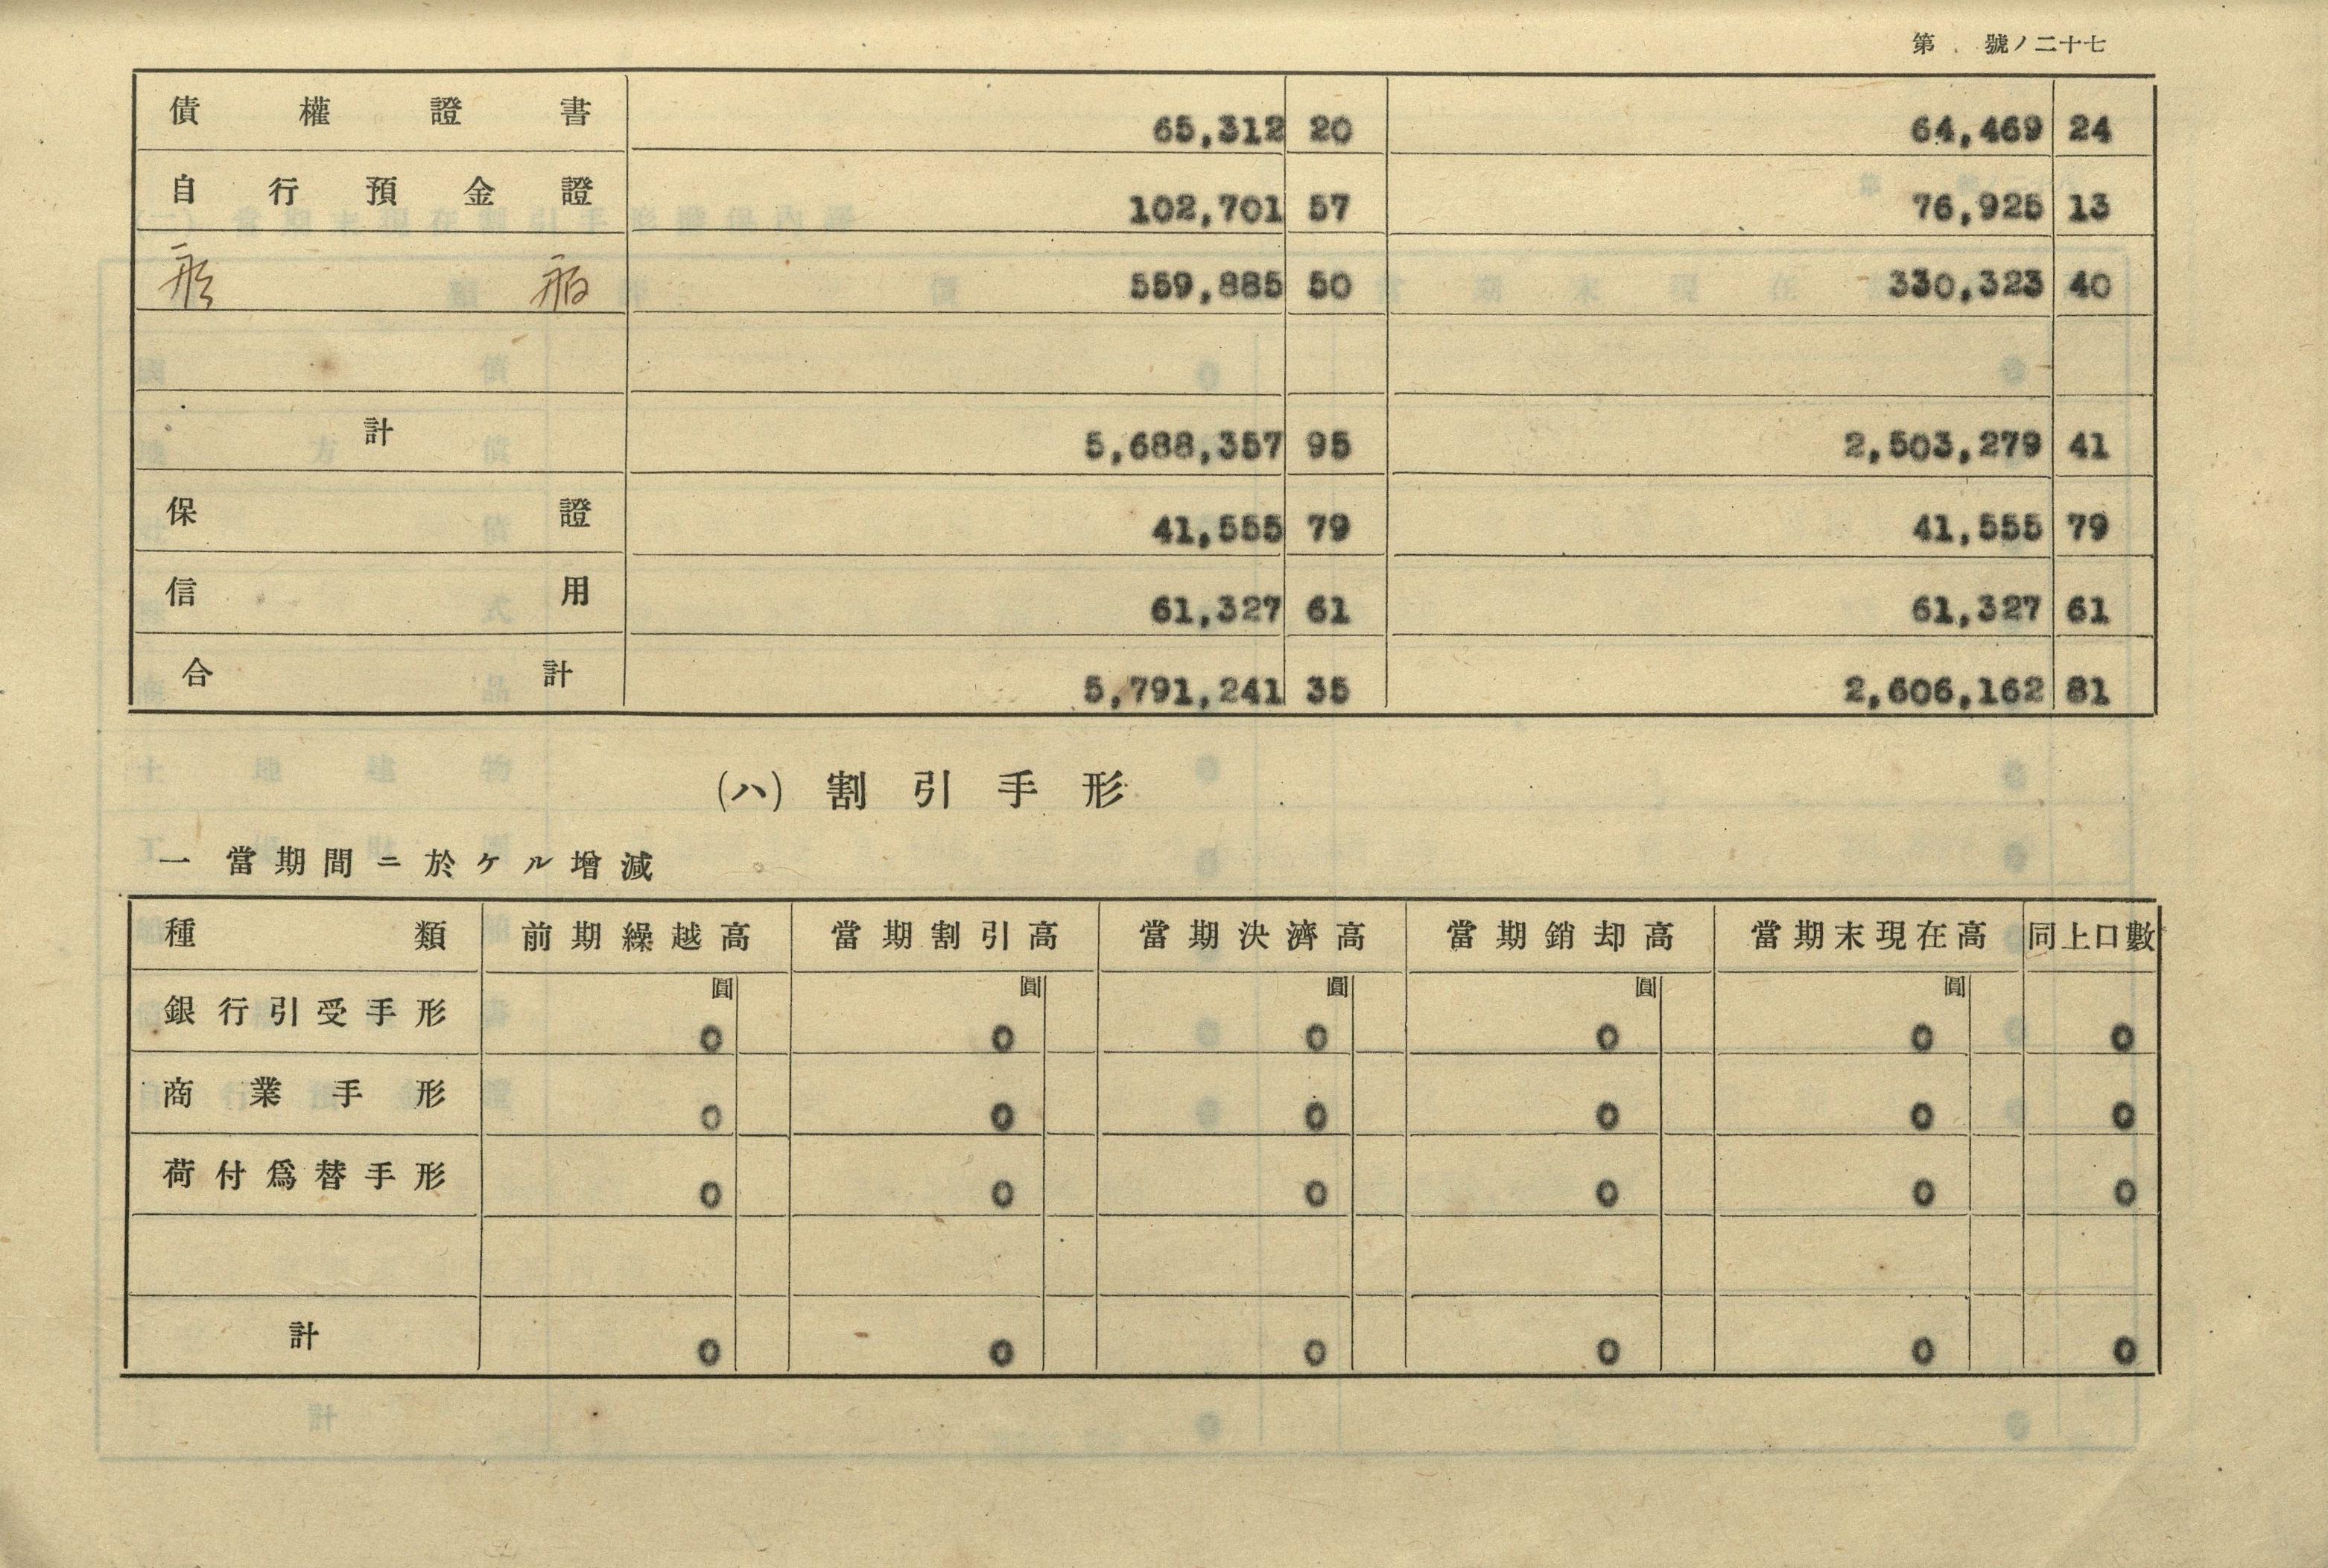 第 號ノ二十七
債權證書 65,312 20 64,469 24
自行預金證 102,701 57 76,925 13
559,885 50 330,323 40
計 5,688,357 95 2,503,279 41
保證 41,555 79 41,555 79
信用 61,327 61 61,327 61
合計 5,791,241 35 2,606,162 81
(ハ) 割引手形
一 當期間ニ於ケル增減
種類 前期繰越高 當期割引高 當期決濟高 當期銷却高 當期末現在高 同上口數
圓 圓 圓 圓 圓
銀行引受手形 0 0 0 0 0 0
商業手形 0 0 0 0 0 0
荷付爲替手形 0 0 0 0 0 0
計 0 0 0 0 0 0